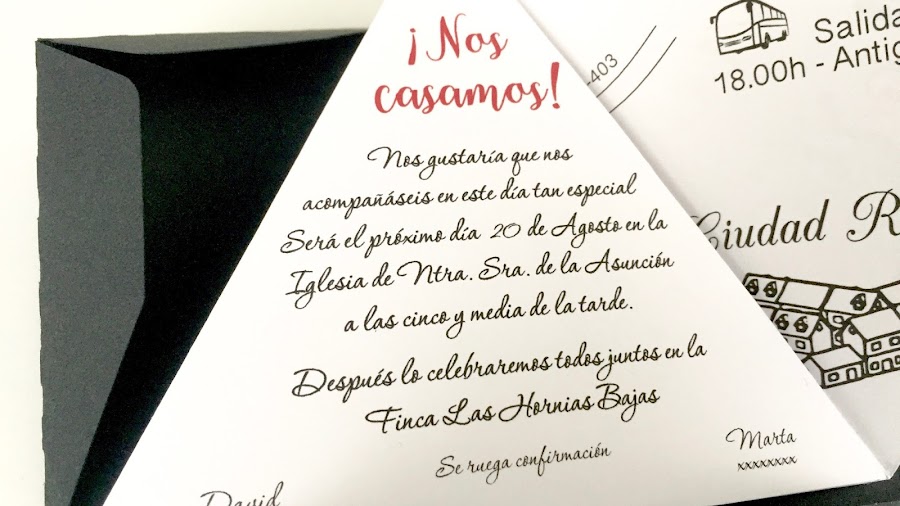 ¡Nos
casamos!
Nos gustaría que nos
acompañáseis en este día tan especial
Será el próximo día 20 de Agosto en la
Iglesia de Ntra. Sra. de la Asunción
a las cinco y media de la tarde.
Después lo celebraremos todos juntos en la
Finca Las Hornias Bajas
Se ruega confirmación
Marta
xxxxxxxx
David
-403
Salida
18.00h - Antig
Ciudad R